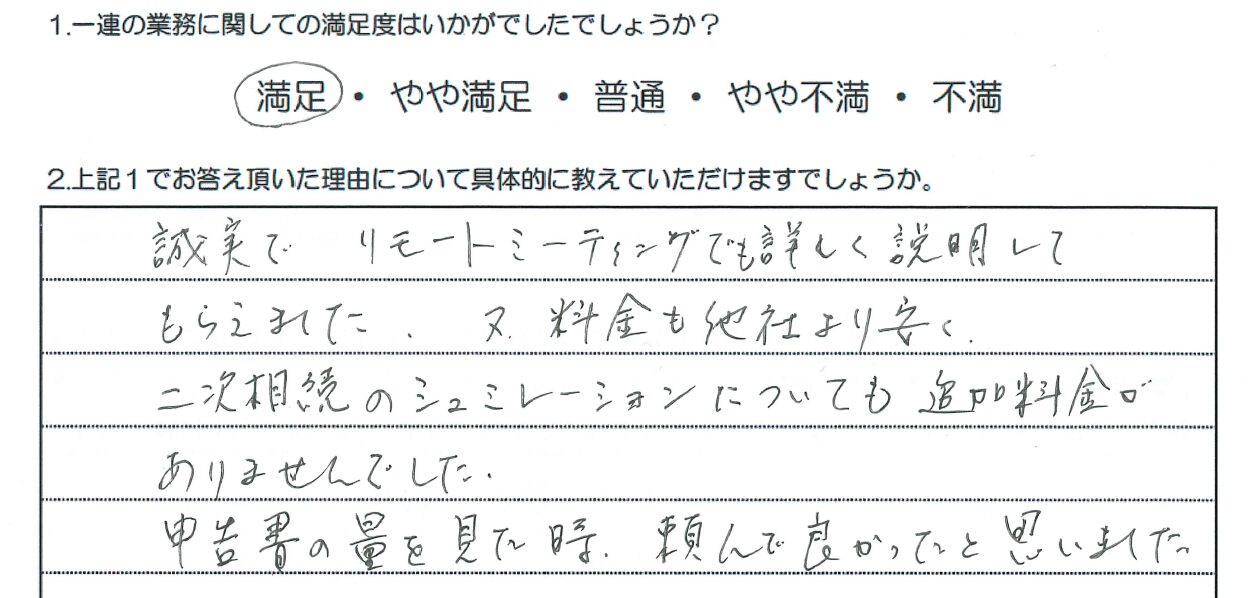 1.一連の業務に関しての満足度はいかがでしたでしょうか？
満足・やや満足・普通・やや不満・不満
2.上記１でお答え頂いた理由について具体的に教えていただけますでしょうか。
誠実で リモートミーティングでも詳しく説明して
もらえました. 又. 料金も他社より安く.
二次相続のシュミレーションについても追加料金が
ありませんでした.
申告書の量を見た時. 頼んで良かったと思いました